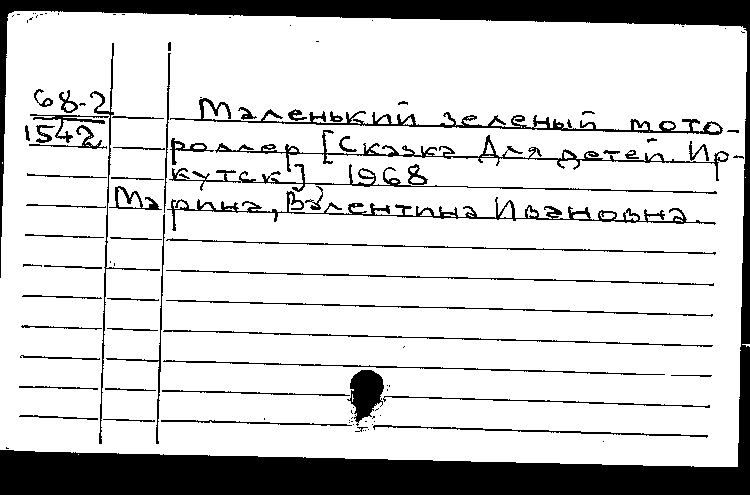 68-2
1542
Маленький зеленый мото-
роллер [Сказка Для детей. Ир-
кутск] 1968
Марина, Валентина Ивановна.